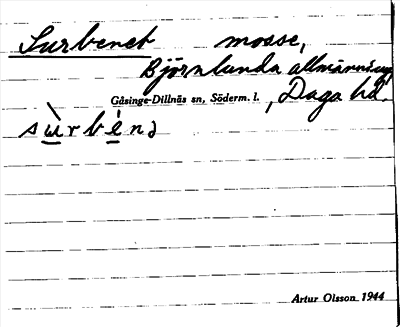 Surbenet mosse,
Björnlunda allmänning,
Gåsinge-Dillnäs sn, Söderm. l., Daga hd.
sùrbènə
Artur Olsson 1944